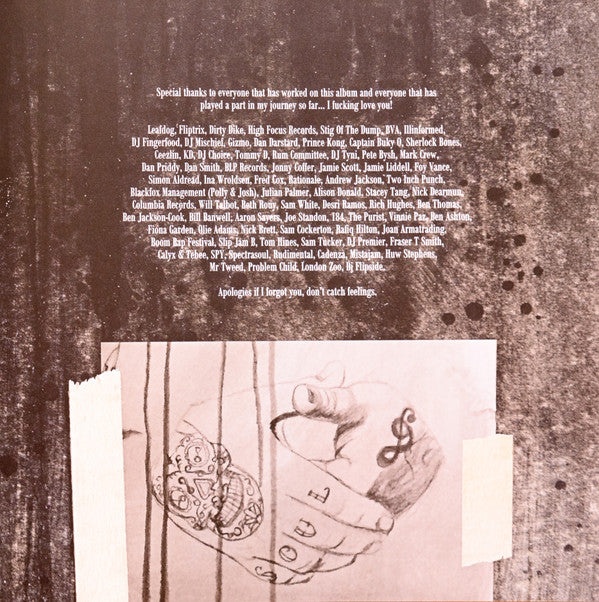 Special thanks to everyone that has worked on this album and everyone that has
played a part in my journey so far... I fucking love you!
Leafdog, Fliptrix, Dirty Dike, High Focus Records, Stig Of The Dump, BVA, Illinformed,
DJ Fingerfood, DJ Mischief, Gizmo, Dan Darstard, Prince Kong, Captain Buky O, Sherlock Bones,
Ceezlin, KD, DJ Choice, Tommy D, Rum Committee, DJ Tyni, Pete Bysh, Mark Crew,
Dan Priddy, Dan Smith, BLP Records, Jonny Coffer, Jamie Scott, Jamie Liddell, Foy Vance,
Simon Aldread, Ina Wroldsen, Fred Cox, Rationale, Andrew Jackson, Two Inch Punch,
Blackfox Management (Polly & Josh), Julian Palmer, Alison Donald, Stacey Tang, Nick Dearmun,
Columbia Records, Will Talbot, Roth Rouy, Sam White, Desri Ramos, Rich Hughes, Ben Thomas,
Ben Jackson-Cook, Bill Banwell, Aaron Sayers, Joe Standon, 184, The Purist, Vinnie Paz, Ben Ashton,
Fiona Garden, Olie Adams, Nick Brett, Sam Cockerton, Rafiq Hilton, Joan Armatrading,
Boom Bap Festival, Slip Jam B, Tom Hines, Sam Tucker, DJ Premier, Fraser T Smith,
Calyx & Tebee, SPY, Spectrasoul, Rudimental, Cadenza, Mistajam, Huw Stephens,
Mr Tweed, Problem Child, London Zoo, Dj Flipside.
Apologies if I forgot you, don't catch feelings.
SOUL